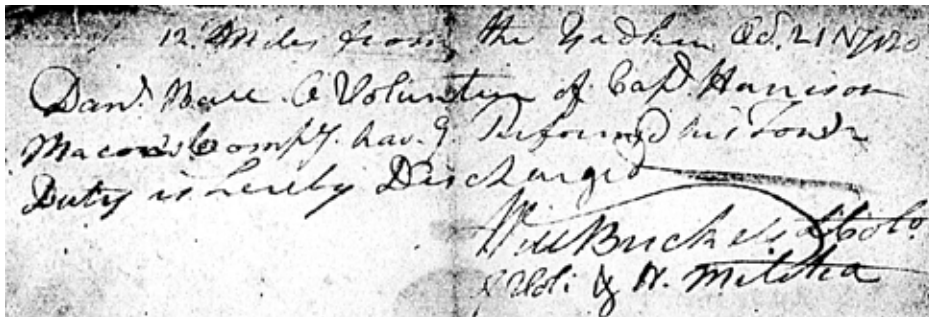 12 Miles from the Yadkin Oct. 21
Danl. a Volunteer of Capt. Harrison
Macon's Compy. hav.g Performed his Tour
Duty is hereby Discharged
Will Lt Colo.
Militia